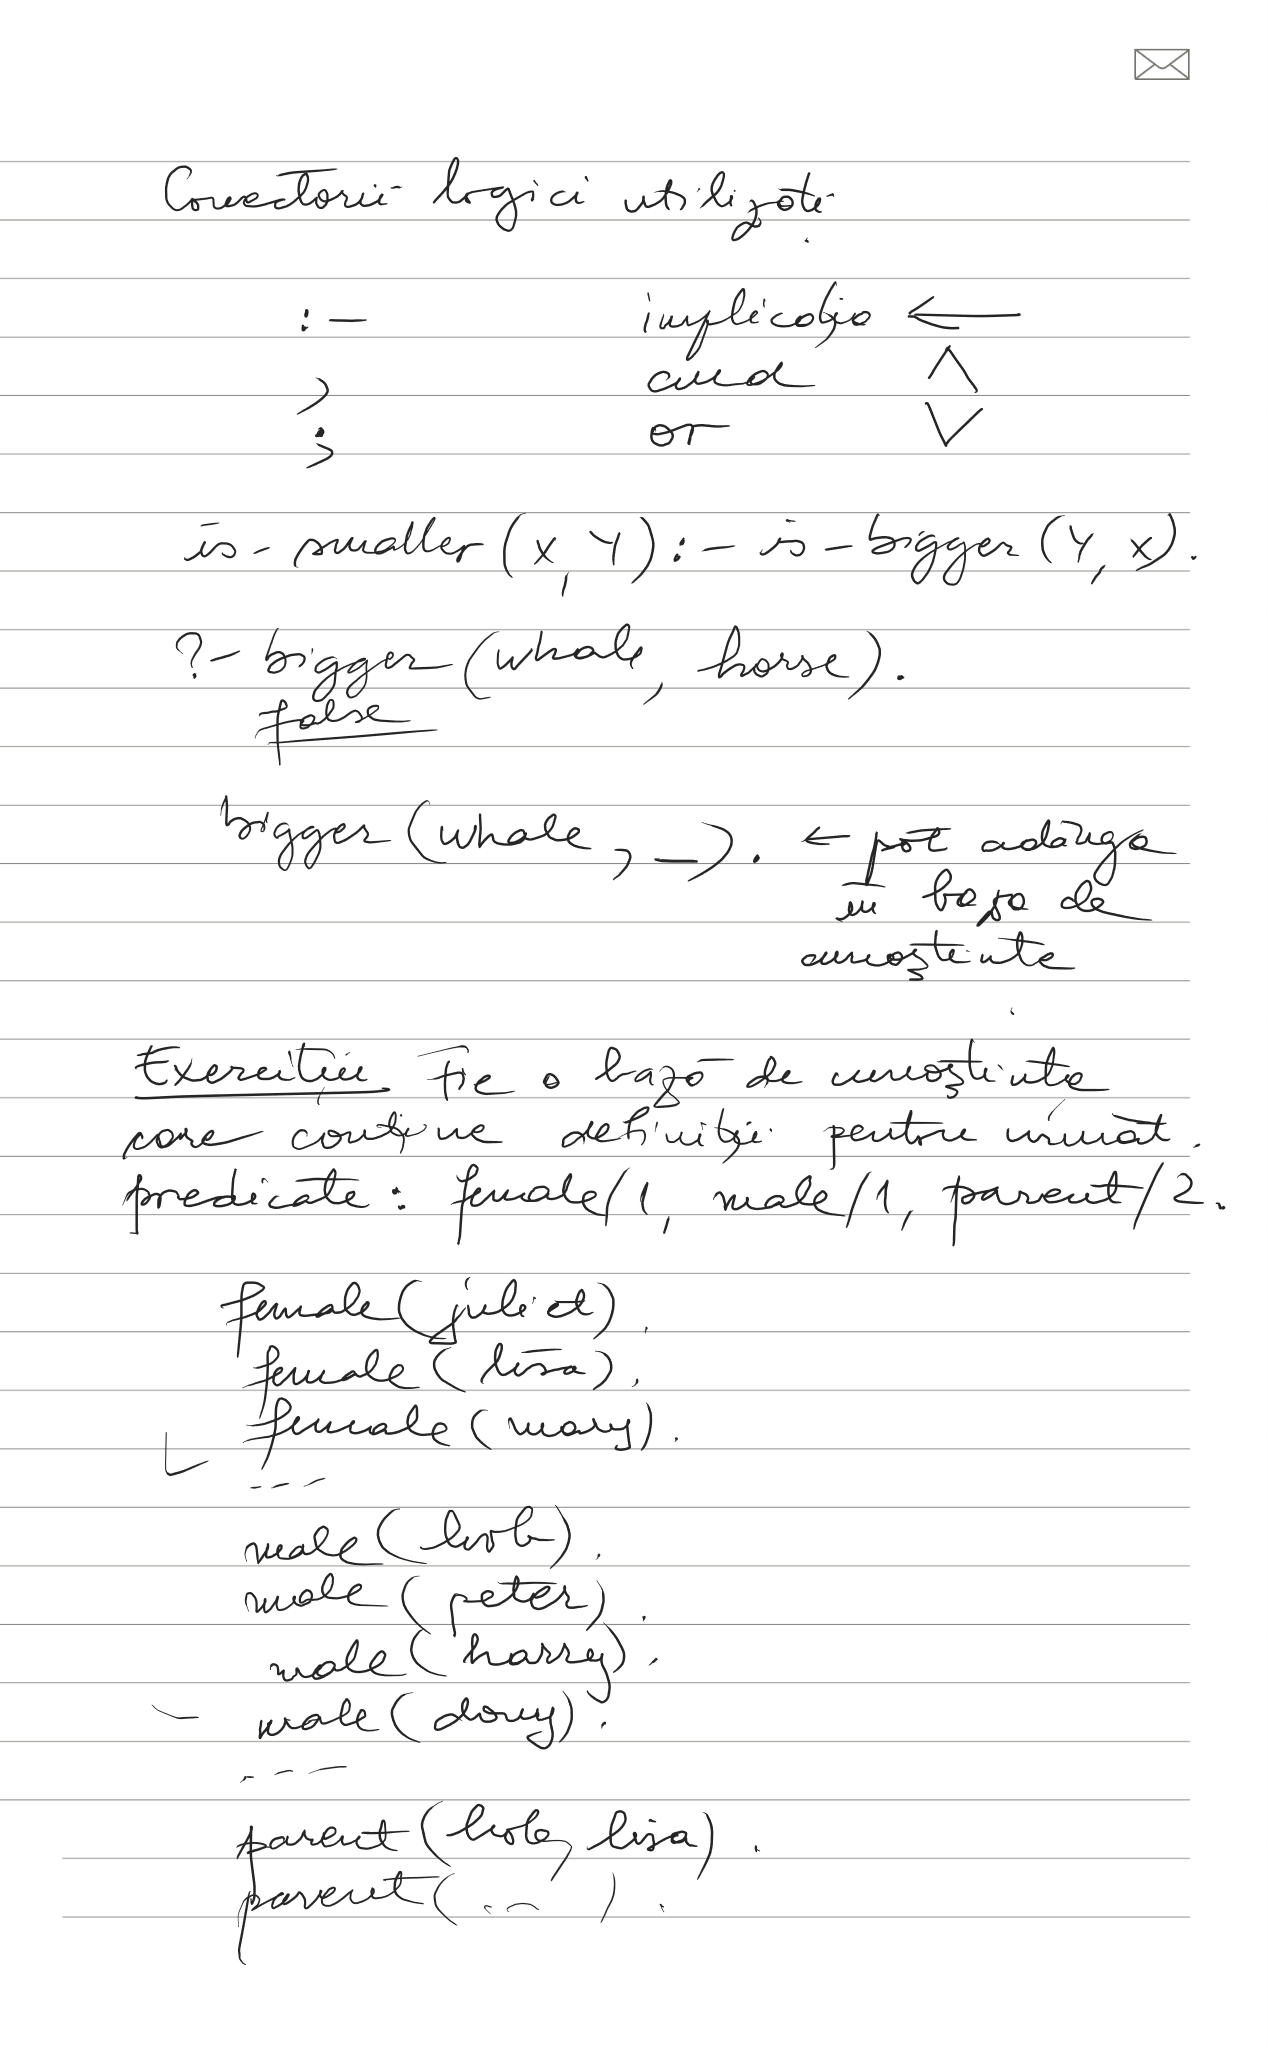 Conectorii logici utilizați
:- implicația ←
, and ∧
; or ∨
is-smaller(X, Y) :- is-bigger(Y, X).
?- bigger(whale, horse).
false
bigger(whale, _). ← pot adăuga
în baza de
cunoștințe
Exercițiu. Fie o bază de cunoștințe
care conține definiții pentru următ.
predicate: female/1, male/1, parent/2.
female(juliet).
female(lisa).
female(mary).
---
male(bob).
male(peter).
male(harry).
male(dony).
---
parent(bob, lisa).
parent(...).